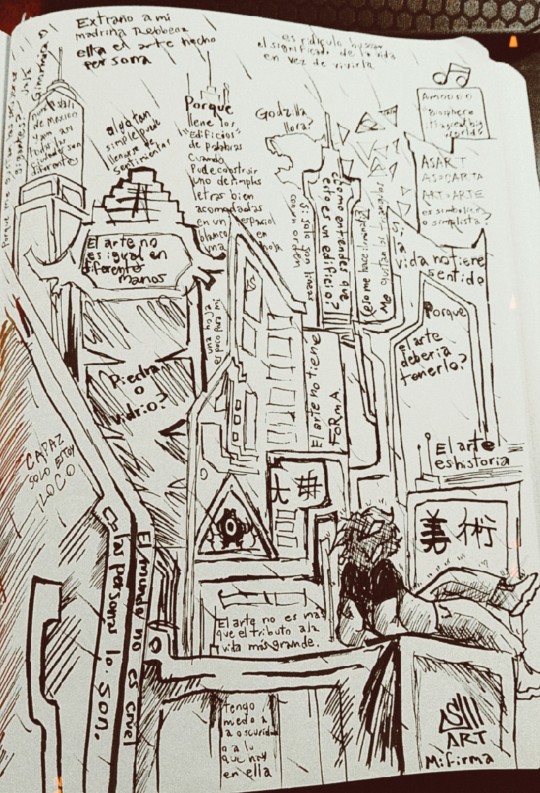 Extraño a mi
madrina Rebbeca
ella el arte hecho
persona
es ridículo buscar
el significado de la vida
en vez de vivirla
algo tan
simple puede
llenarse de
sentimientos
Porque
llene los
edificios
de palabras
cuando
pude construir
uno de simples
letras bien
acomodadas
en un espacio
blanco en
una hoja
Godzilla
llora?
si solo son lineas
con un orden
como entiendes que
esto es un edificio?
ASART
ASOGARTA
ART=ARTE
es simbolico
o simplista?
Si la
vida no tiene
sentido
Porque
el arte
deberia
tenerlo?
El arte no
es igual en
diferente
manos
una hoja
es poco para mi
Piedra
o
vidrio?
El arte no tiene
FORMA
El arte
es historia
CAPAZ
SOLO ESTOY
LOCO
美術
El mundo no es cruel
las personas lo son.
El arte no es mas
que el tributo a la
vida mas grande.
Tengo
miedo a
la oscuridad
o a lo
que hay
en ella
ART
Mi firma